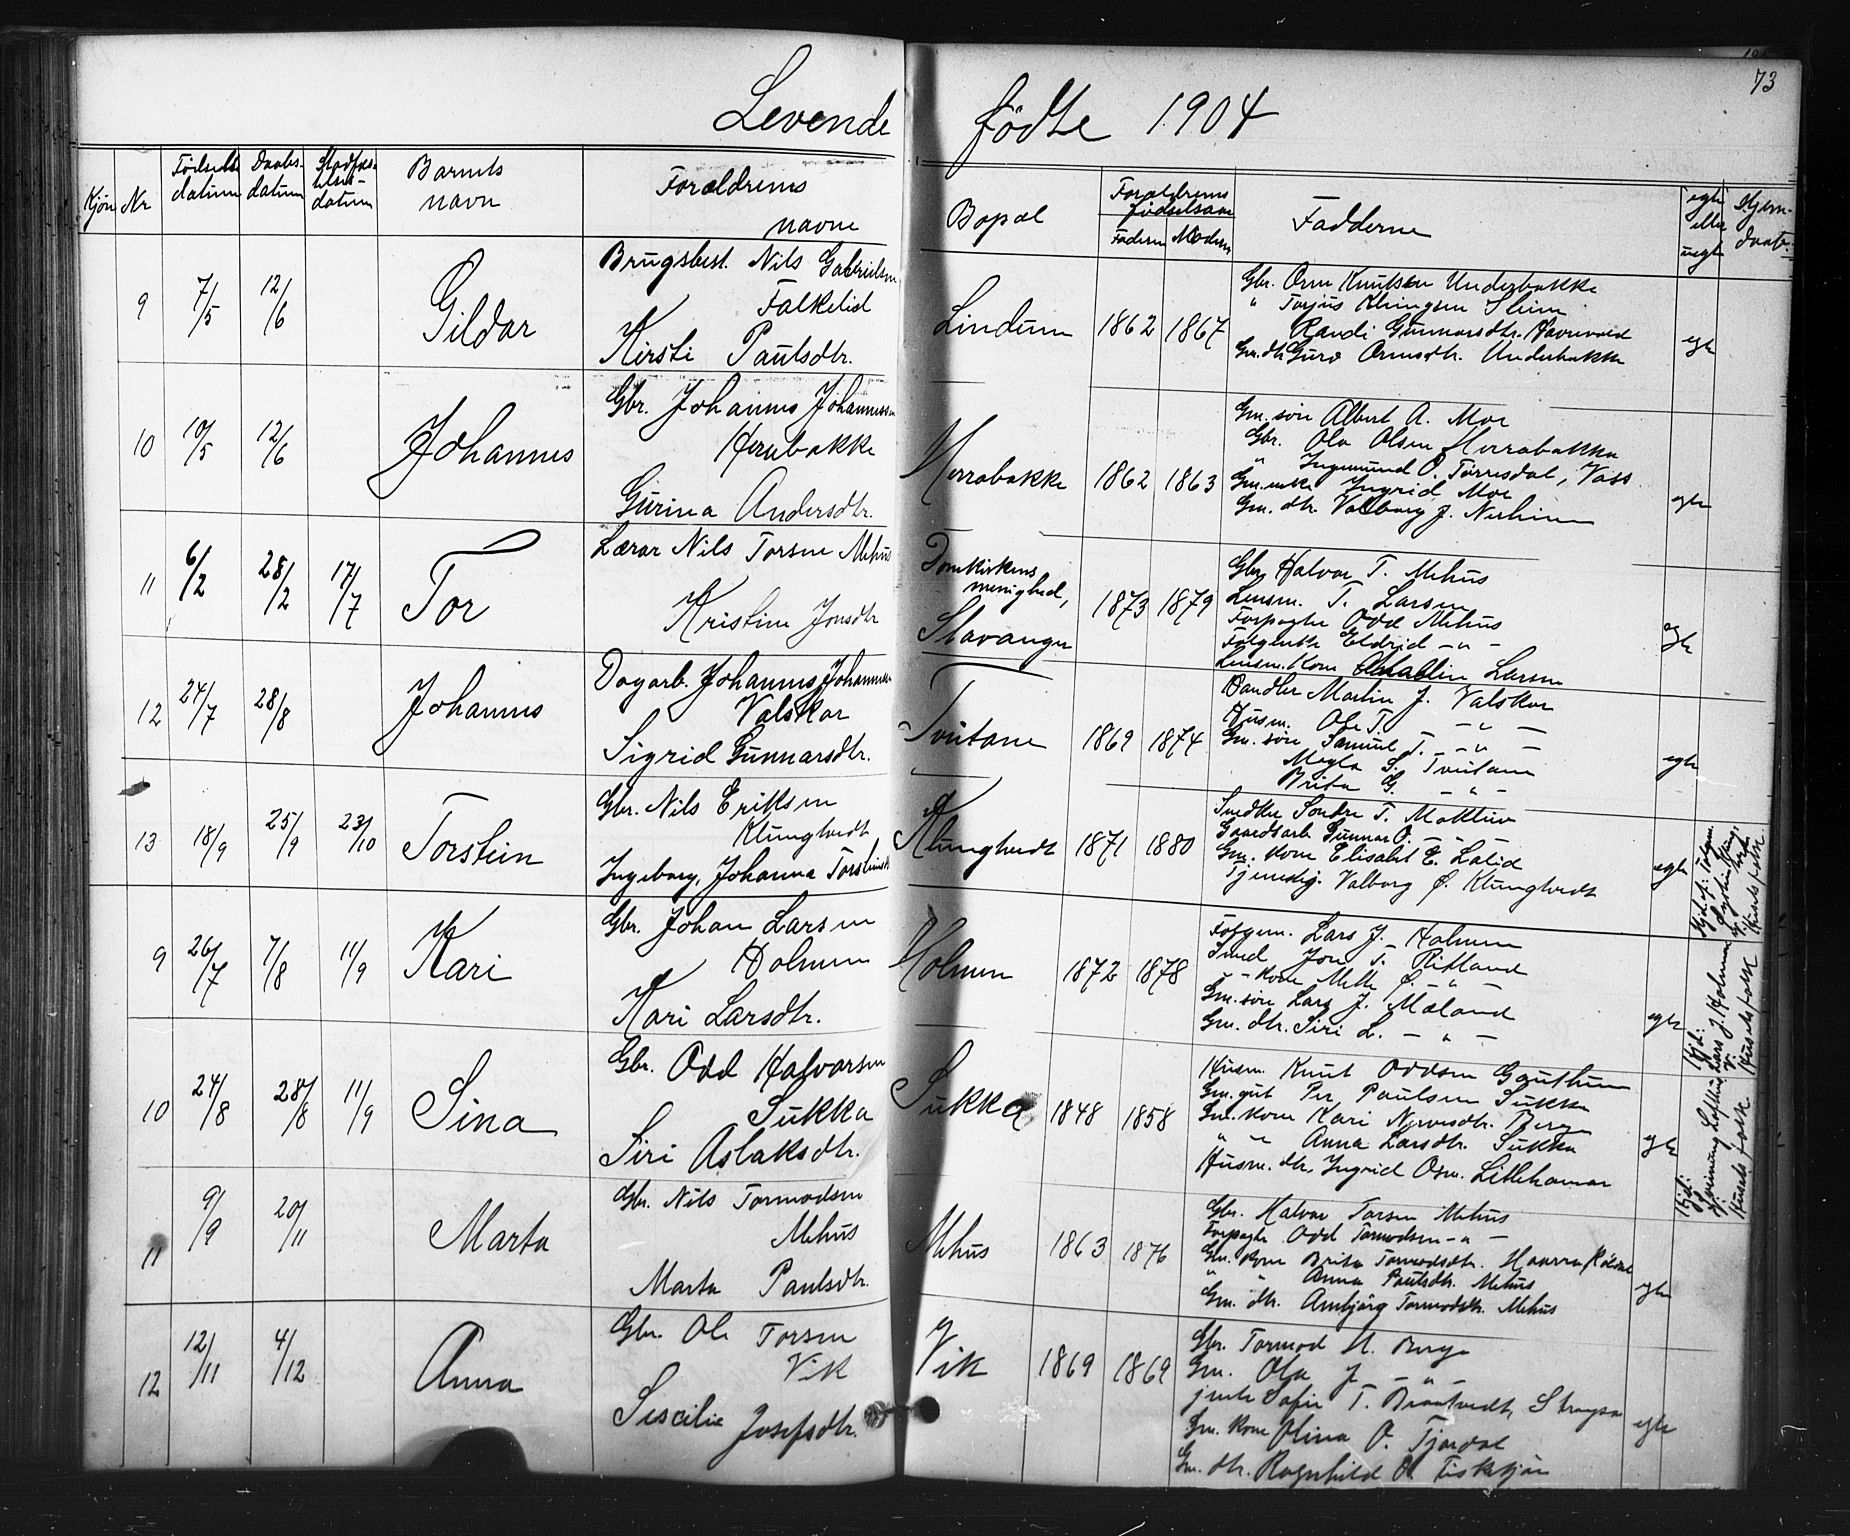 73
Levende fødte 1904
Kjøn Nr Fødsels datum Daabs- datum Stadfæs- telses- datum Barnets navn Forældrenes navne Bopæl Forældrenes fødselsaar Faderen Moderen Fadderne egte eller uegte Hjem- daab.
9 7/5 12/6 Gildar
Brugsbest. Nils Gabrielsen
Falkelid
Kirsti Paulsdtr.
Lindum 1862 1867
Gbr. Orm Knutsen Underbakke
" Torjus
Randi Gunnarsdtr.
Gm. dtr. Guro Ormsdtr. Underbakke
egte
10 10/5 12/6 Johannes
Gbr. Johannes Johannessen
Herabakke
Gurina Andersdtr.
Herrabakke 1862 1863
Gm. søn Albert A. Moe
Gbr. Ola Olsen Herrabakka
" Ingemund O. Tørresdal, Vass
Gm. enke Ingrid Moe
Gm. dtr. Valborg J.
egte
11 6/2 28/2 17/7 Tor
Lærar Nils Torsen Mehus
Kristine Jonsdtr
Domkirkens menighed, Stavanger 1873 1879
Gbr. Halvor T. Mehus
Lensm. T. Larsen
Forpagter Odd Mehus
Følgenke Eldrid - " -
Lensm. kone Larsen
egte
12 24/7 28/8 Johannes
Dagarb. Johannes Johannessen
Valskar
Sigrid Gunnarsdtr.
Tveitane 1869 1874
Handler Martin J. Valskar
Husm. Ole T. - " -
Gm. søn Samuel T. - " -
S. Tveitane
Brita G. - " -
egte
13 18/9 25/9 23/10 Torstein
Gbr. Nils Eriksen
Klungtvedt
Ingeborg Johanna Torsteinsdtr
Klungtvedt 1871 1880
Snedker Sondre T.
Gaardsarb. Gunnar O. - " -
Gm. kone Elisabet E. Latid
Tjenedpg. Valborg Ø. Klungtvedt
egte
9 26/7 7/8 11/9 Kari
Gbr. Johan Larsen
Holmen
Kari Larsdtr.
Holmen 1872 1878
Følgem. Lars J. Holmen
Smed Jon T. Ritland
" - kone Mette Ø. - " -
Gm. søn Lars J. Mæland
Gm. dtr. Siri L. - " -
egte
Hjd: Lars J. Holmen
Husets folk
10 24/8 28/8 11/9 Sina
Gbr. Odd Halvorsen
Sukka
Siri Aslaksdtr.
Sukka 1848 1858
Husm. Knut Oddsen Gauthun
Gm. gut Per Paulsen Sukka
Gm. kone Kari Berge
" " Anna Larsdtr. Sukka
Husm. dtr. Ingrid Osm. Litlehamar
egte
Hjd:
Husets folk
11 9/9 20/11 Marta
Gbr. Nils Tormodsen
Mehus
Marta Paulsdtr.
Mehus 1863 1876
Gbr. Halvor Torsen Mehus
Forpagter Odd Tormodsen - " -
Gm. kone Brita Tormodsdtr.
" " Anna Paulsdtr. Mehus
Gm. dtr. Anbjörg Tormodsdtr. Mehus
egte
12 12/11 4/12 Anna
Gbr. Ole Torsen
Vik
Sescilie Josefsdtr.
Vik 1869 1869
Gbr. Tormod H. Berge
Gm. Ola J. - " -
jente Sofie T.
Gm. kone Olina O. Tjordal
Gm. dtr. Ragnhild O.
egte